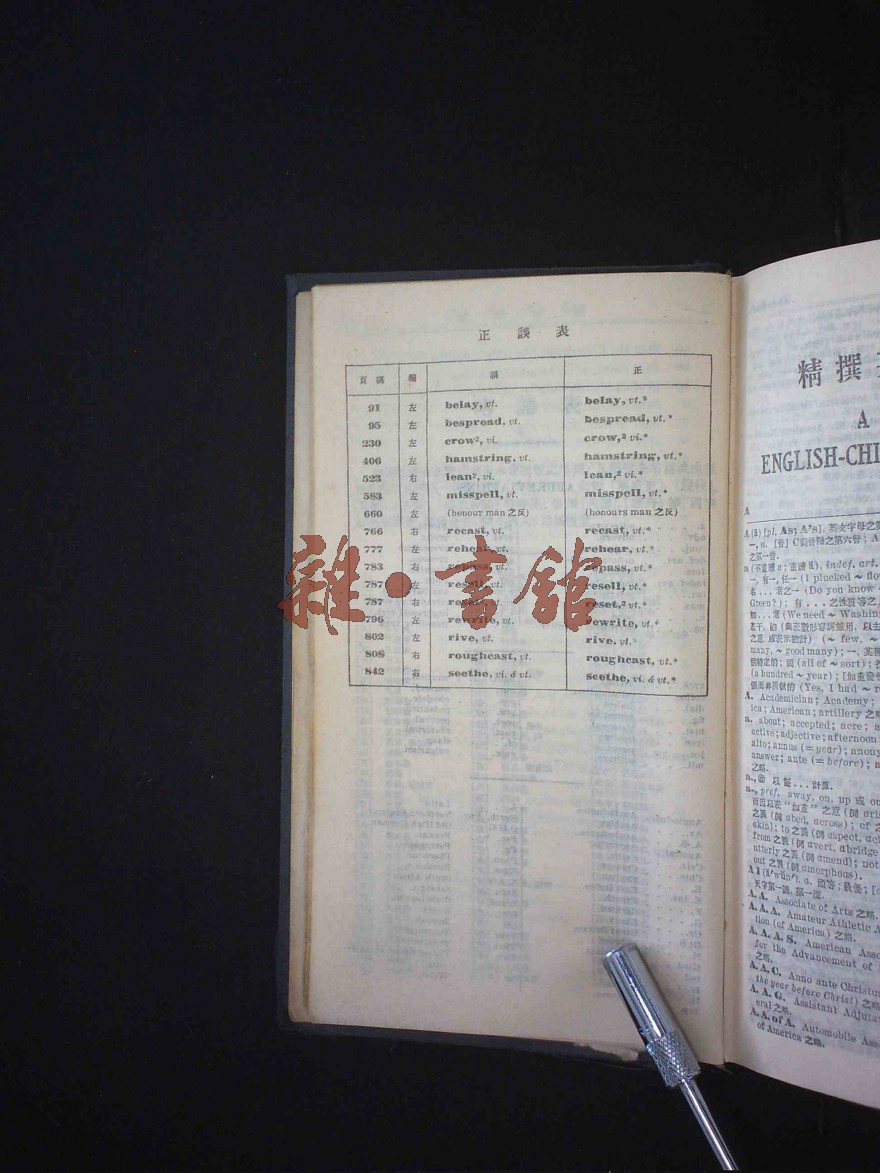 正 誤 表
頁 碼 欄 誤 正
91 左 belay, vt. belay, vt.*
95 左 bespread, vt. bespread, vt.*
230 左 crow², vi. crow,² vi.*
406 左 hamstring, vt. hamstring, vt.*
523 右 lean², vi. lean,² vi.*
583 左 misspell, vt. misspell, vt.*
660 左 (honour man 之反) (honours man 之反)
766 右 recast, vt. recast, vt.*
777 左 rehear, vt. rehear, vt.*
783 右 repass, vt. repass, vt.*
787 左 resell, vt. resell, vt.*
787 右 reset, vt. reset,² vt.*
796 左 rewrite, vt. rewrite, vt.*
802 左 rive, vt. rive, vt.*
808 右 roughcast, vt. roughcast, vt.*
842 右 seethe, vi. & vt. seethe, vi. & vt.*
雜·書館
精 撰
A
ENGLISH-CHI
A
A (ā) [pl. As; A's]. 英文字母之
之第一音.
一, 有一, 任一 (I plucked ~ flo
名...者之一 (Do you know
Green?); 有...之性質等之
如...者 (We need ~ Washin
(~ few, ~
many, ~ good many); 一, 某
(all of ~ sort);
(a hundred ~ year);
(Yes, I had ~ r
A. Academician; Academy;
ica; American; artillery 之略
a. about; accepted; acre; a
active; adjective; afternoon
alto; annus (= year); anony
answer; ante (= before); a
之略.
a-, @ 以每...計算.
a-, pref. away, on, up 或 ou
而因以表 "加重" 之意 (例 ari
之義 (例 abed, across); of 之
akin); to 之義 (例 aspect, ach
from 之義 (例 avert, abridge
utterly 之義 (例 amend); not
out 之義 (例 amorphous).
A 1 (ā' wŭn'), a. 頭等; 最優; [c
天字第一號, 第一流.
A. A. Associate of Arts 之略.
A. A. A. Amateur Athletic A
tion (of America) 之略.
A. A. A. S. American Asso
for the Advancement of
之略.
A. A. C. Anno ante Christu
the year before Christ) 之略
A. A. G. Assistant Adjuta
eral 之略.
A. A. of A. Automobile Ass
of America 之略.